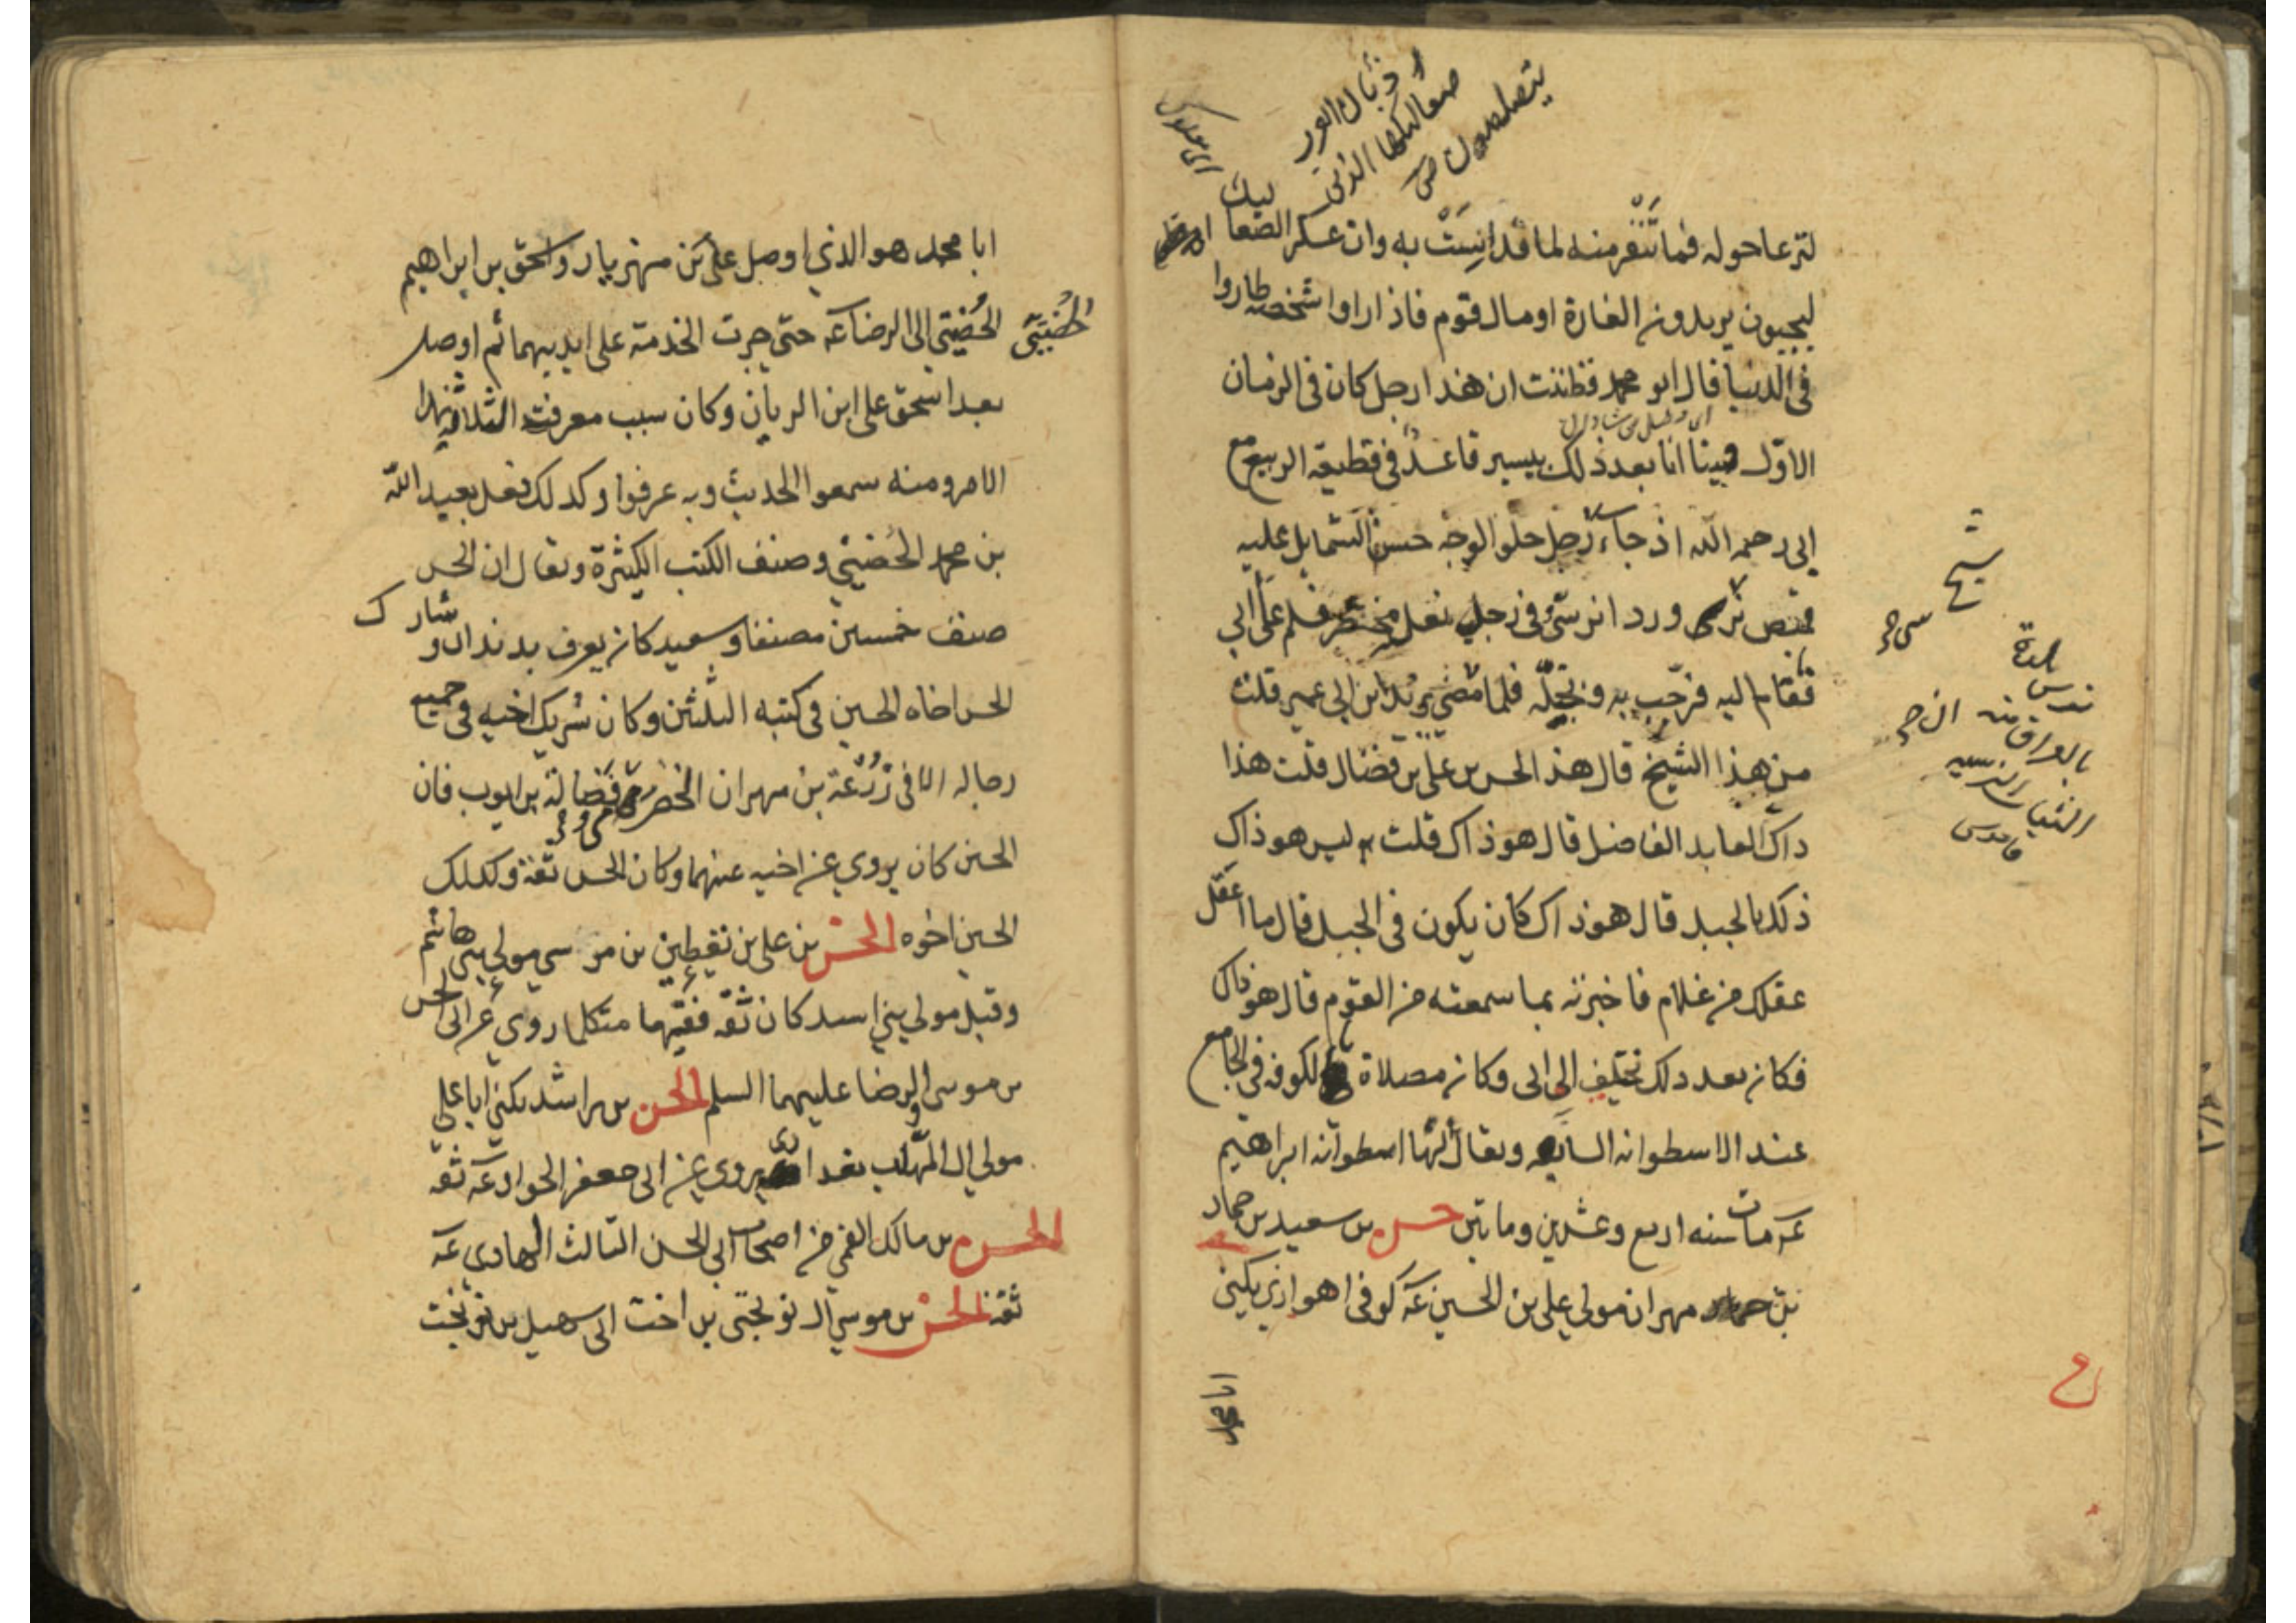 ذؤبان العرب
صعاليكها الذين
يتصلصون ص
لترعا حوله فما تنفر منه لما قد انست به وان عسكر الصعاليك
ليجيون يريدون الغارة او مال قوم فاذا راوا شخصه طاروا
فى الدنيا قال ابو محمد فظننت ان هذا رجل كان فى الزمان
الاول فبينا انا بعد ذلك بيسير قاعد فى قطيعة الربيع مع
ابى رحمه الله اذ جاء رجل حلو الوجه حسن الشمايل عليه
قميص نرسى ورداء نرسى وفى رجله نعل مخصر فسلم على ابى
فقام اليه فرحب به وبجله فلما مضى يريد ابن ابى عمير قلت
من هذا الشيخ قال هذا الحسن بن على بن فضال قلت هذا
ذاك العابد الفاضل قال هو ذاك قلت ليس هو ذاك
ذاك بالجبل قال هو ذاك كان يكون فى الجبل قال ما اغفل
عقلك من غلام فاخبرته بما سمعته من القوم قال هو ذاك
فكان بعد ذلك يختلف الى ابى وكان مصلاه بالكوفه فى الجامع
عند الاسطوانه السابعه ويقال لها اسطوانه ابراهيم
عه مات سنه اربع وعشرين وماتين حسن بن سعيد بن حماد
بن مهران مولى على بن الحسين عه كوفى اهوازى يكنى
ابا محمد
ابا محمد هو الذي اوصل على بن مهزيار واسحق بن ابراهيم
الحضينى الى الرضا عه حتى جرت الخدمة على ايديهما ثم اوصل
الحضينى
بعد اسحق على ابن الريان وكان سبب معرفة الثلاثة بهذا
الامر ومنه سمعوا الحديث وبه عرفوا وكذلك فعل بعبد الله
بن محمد الحضينى وصنف الكتب الكثيرة ويقال ان الحسن
صنف خمسين مصنفا وسعيد كان يعرف بدندان وشارك
الحسن اخاه الحسين فى كتبه الثلثين وكان شريك اخيه فى جميع
رجاله الا فى زرعة بن مهران الحضرمى وفضالة بن ايوب فان
الحسين كان يروي عن اخيه عنهما وكان الحسن ثقة وكذلك
الحسين اخوه الحسن بن على بن يقطين بن موسى مولى بنى هاشم
وقيل مولى بنى اسد كان ثقه فقيها متكلما روى عن ابى الحسن
بن موسى والرضا عليهما السلم الحسن بن راشد يكنى ابا على
مولى ال المهلب بغدادى يروى عن ابى جعفر الجواد عه ثقه
الحسن بن مالك القمى من اصحاب ابى الحسن الثالث الهادى عه
ثقة الحسن بن موسى ال نوبختى بن اخت ابى سهيل بن نوبخت